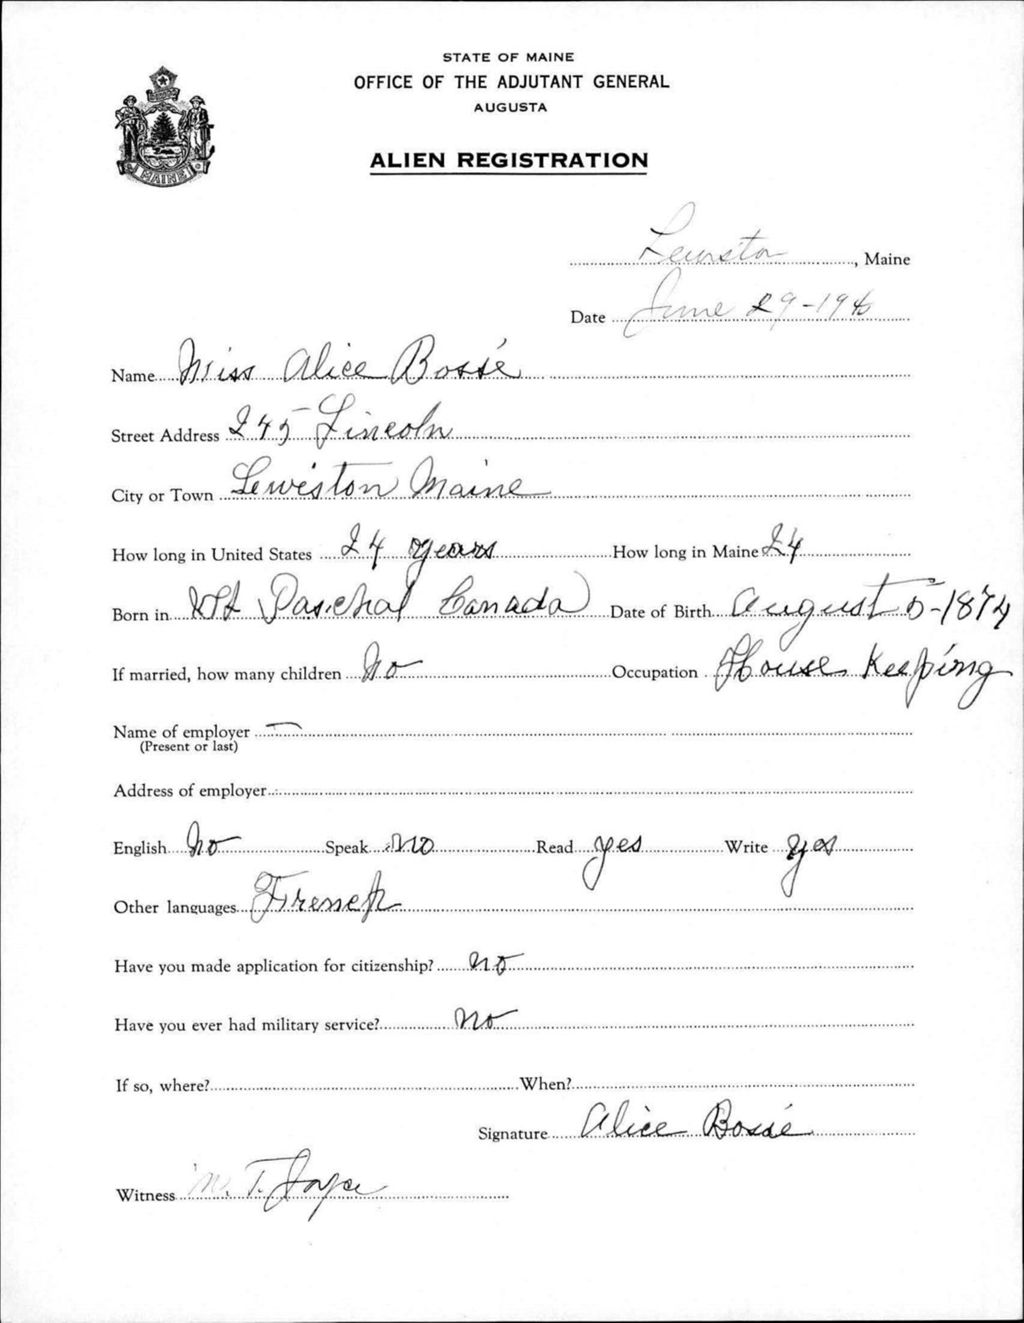 STATE OF MAINE
OFFICE OF THE ADJUTANT GENERAL
AUGUSTA
ALIEN REGISTRATION
MAINE
Lewiston, Maine
Date June 29-1940
Name Miss Alice Bossé
Street Address 245 Lincoln
City or Town Lewiston Maine
How long in United States 24 years How long in Maine 24
Born in St Paschal Canada Date of Birth August 5-1874
If married, how many children No Occupation House Keeping
Name of employer —
(Present or last)
Address of employer
English No Speak no Read yes Write yes
Other languages French
Have you made application for citizenship? no
Have you ever had military service? no
If so, where? When?
Signature Alice Bossé
Witness W. T. Joyce